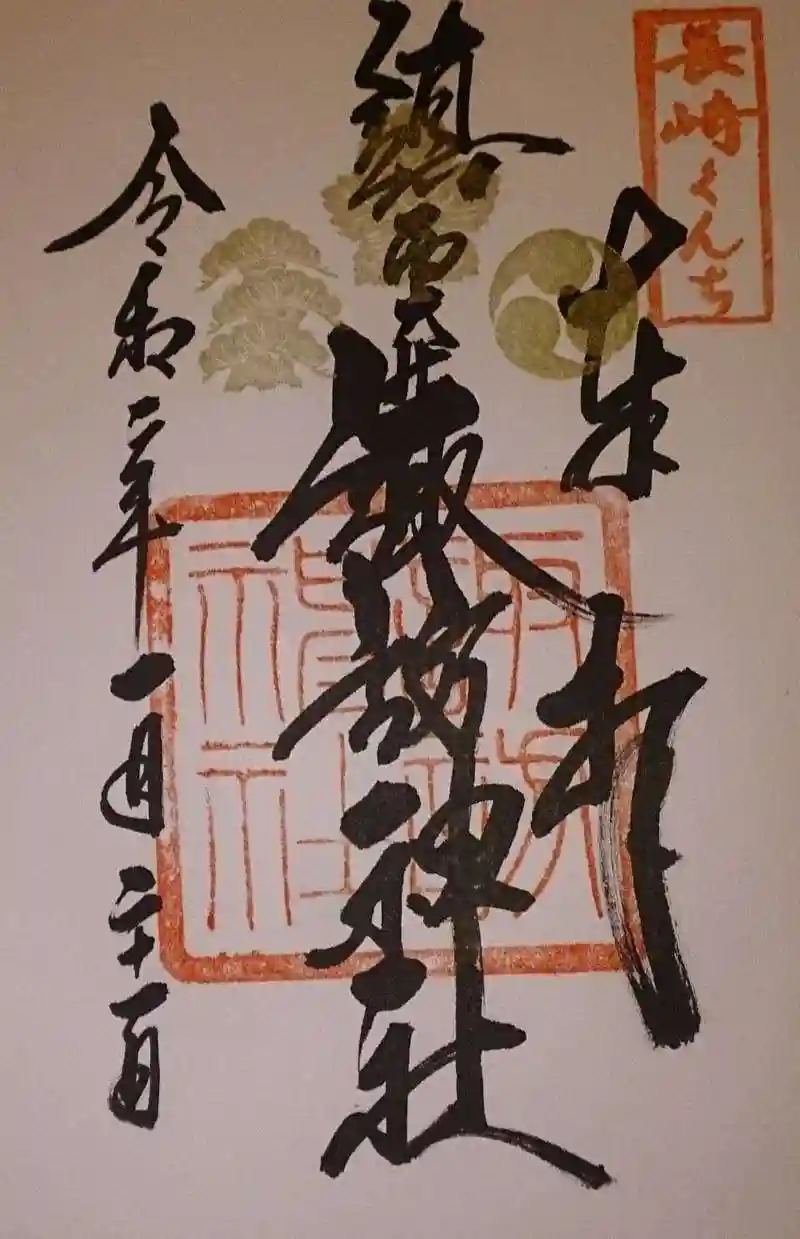 長崎くんち
奉拝
鎮西大社
諏訪神社
令和二年一月二十一日
諏訪
神社